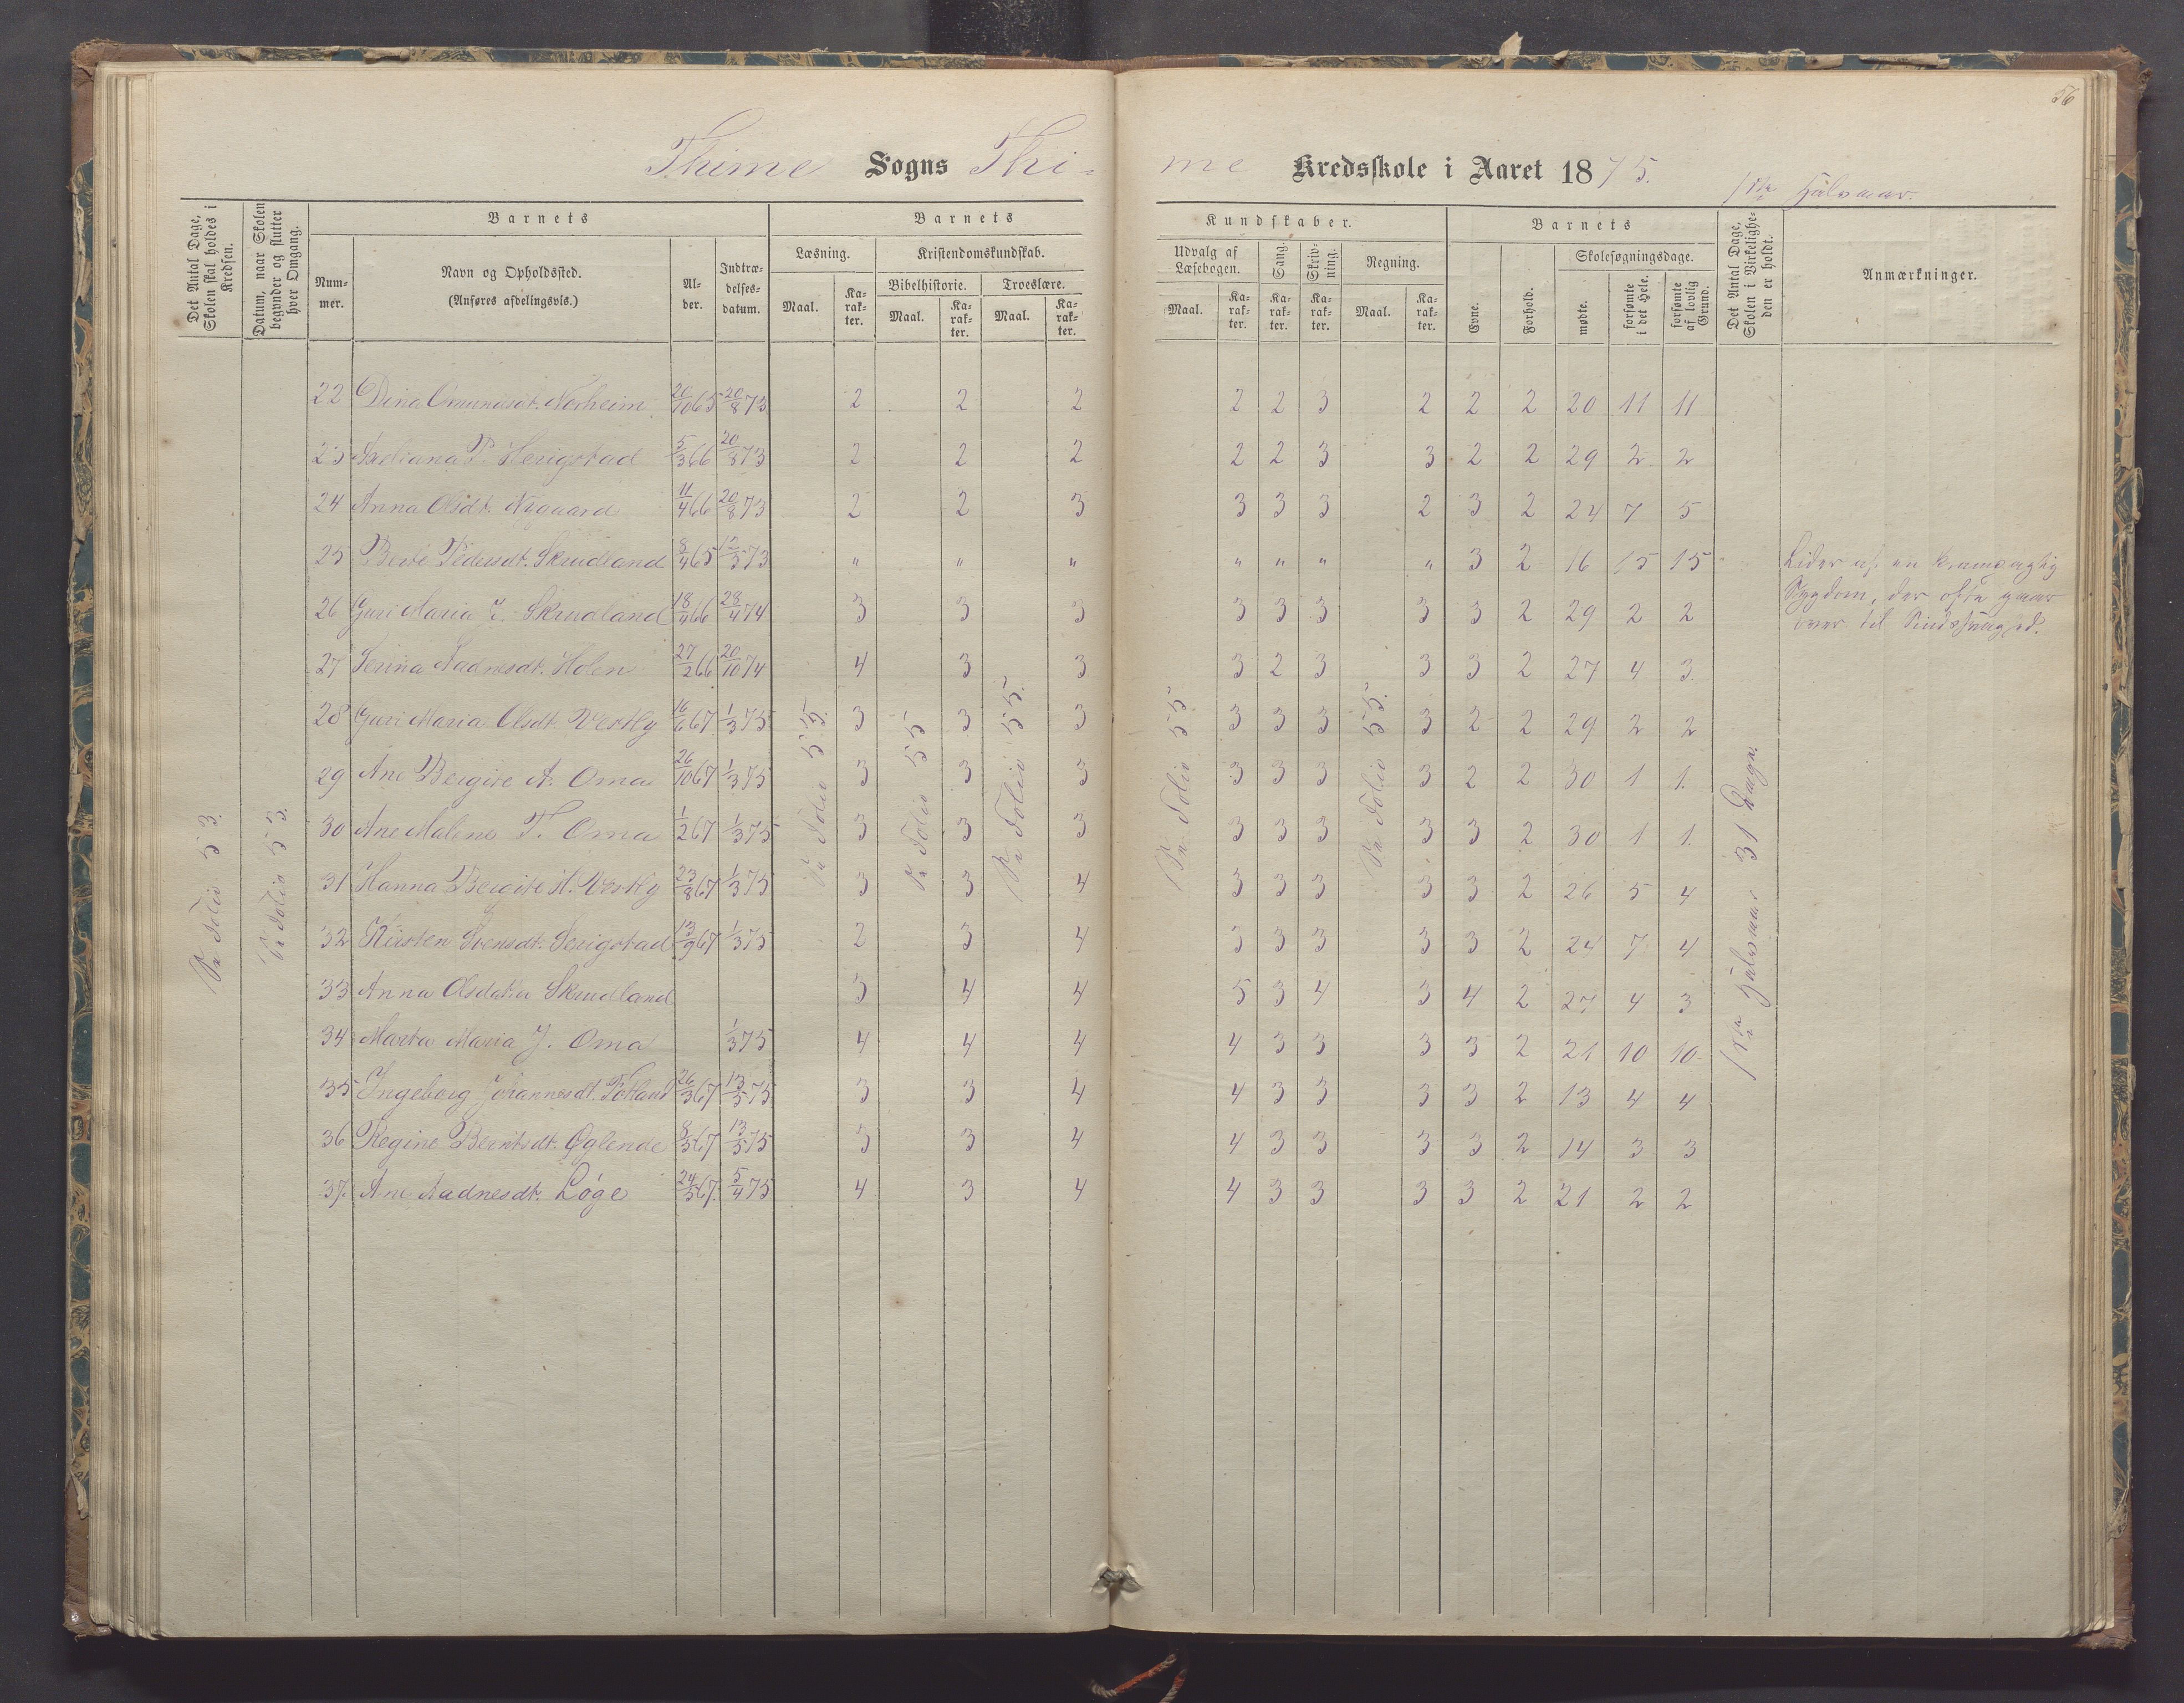 56
Thime Sogns Thi-me Kredsskole i Aaret 1875. 1ste Halvaar.
Det Antal Dage, Skolen skal holdes i Kredsen.
Datum, naar Skolen begynder og slutter hver Omgang.
Barnets
Nummer.
Navn og Opholdssted.
(Anføres afdelingsvis.)
Alder.
Indtrædelsesdatum.
Barnets
Læsning.
Maal.
Karakter.
Kristendomskundskab.
Bibelhistorie.
Maal.
Karakter.
Troeslære.
Maal.
Karakter.
Kundskaber.
Udvalg af Læsebogen.
Maal.
Karakter.
Sang.
Karakter.
Skrivning.
Karakter.
Regning.
Maal.
Karakter.
Barnets
Evne.
Forhold.
Skolesøgningsdage.
mødte.
forsømte i det Hele.
forsømte af lovlig Grund.
Det Antal Dage, Skolen i Virkeligheden er holdt.
Anmærkninger.
22 Dina Omundsdt. Norheim 20/10 65 20/8 73 2 2 2 2 2 3 2 2 2 20 11 11
23 P. Herigstad 5/3 66 20/8 73 2 2 2 2 2 3 3 2 2 29 2 2
24 Anna Olsdt. Nygaard 11/4 66 20/8 73 2 2 3 3 3 3 2 3 2 24 7 5
25 Berte Pedersdt. Skrudland 8/4 65 12/5 73 " " " " " " " 3 2 16 15 15 Lider af en krampagtig
26 Guri Maria T. Skrudland 18/4 66 28/4 74 3 3 3 3 3 3 3 3 2 29 2 2 Sygdom, der ofte gaar
over til Sindssvaghed.
27 Serina Aadnesdt. Holen 27/2 66 20/10 74 4 3 3 3 2 3 3 3 2 27 4 3.
28 Guri Maria Olsdt. Vestly 16/6 67 1/3 75 3 3 3 3 3 3 3 2 2 29 2 2
29 Ane Bergite A. Oma 26/10 67 1/3 75 3 3 3 3 3 3 3 2 2 30 1 1.
30 Ane Malene T. Oma 1/2 67 1/3 75 3 3 3 3 3 3 3 3 2 30 1 1.
31 Hanna Bergite H. Vestly 23/8 67 1/3 75 3 3 4 3 3 3 3 3 2 26 5 4
32 Kirsten Svensdt. Serigstad 13/9 67 1/3 75 2 3 4 3 3 3 3 3 2 24 7 4
33 Anna Olsdatter Skrudland 3 4 4 5 3 4 3 4 2 27 4 3
34 Marta Maria J. Oma 1/3 75 4 4 4 4 3 3 3 3 2 21 10 10
35 Ingeborg Johannesdt. Fotland 26/3 67 13/5 75 3 3 4 4 3 3 3 3 2 13 4 4
36 Regine Berntsdt. Øglende 8/5 67 13/5 75 3 3 4 4 3 3 3 3 2 14 3 3
37. Ane Aadnesdt. Løge 24/5 67. 5/4 75 4 3 4 4 3 3 3 3 2 21 2 2
Se Folio 53.
Se Folio 53.
Se Folio 55.
Se Folio 55
Se Folio 55.
Se Folio 55
Se Folio 55.
1ste Halvaar 31 Dage.